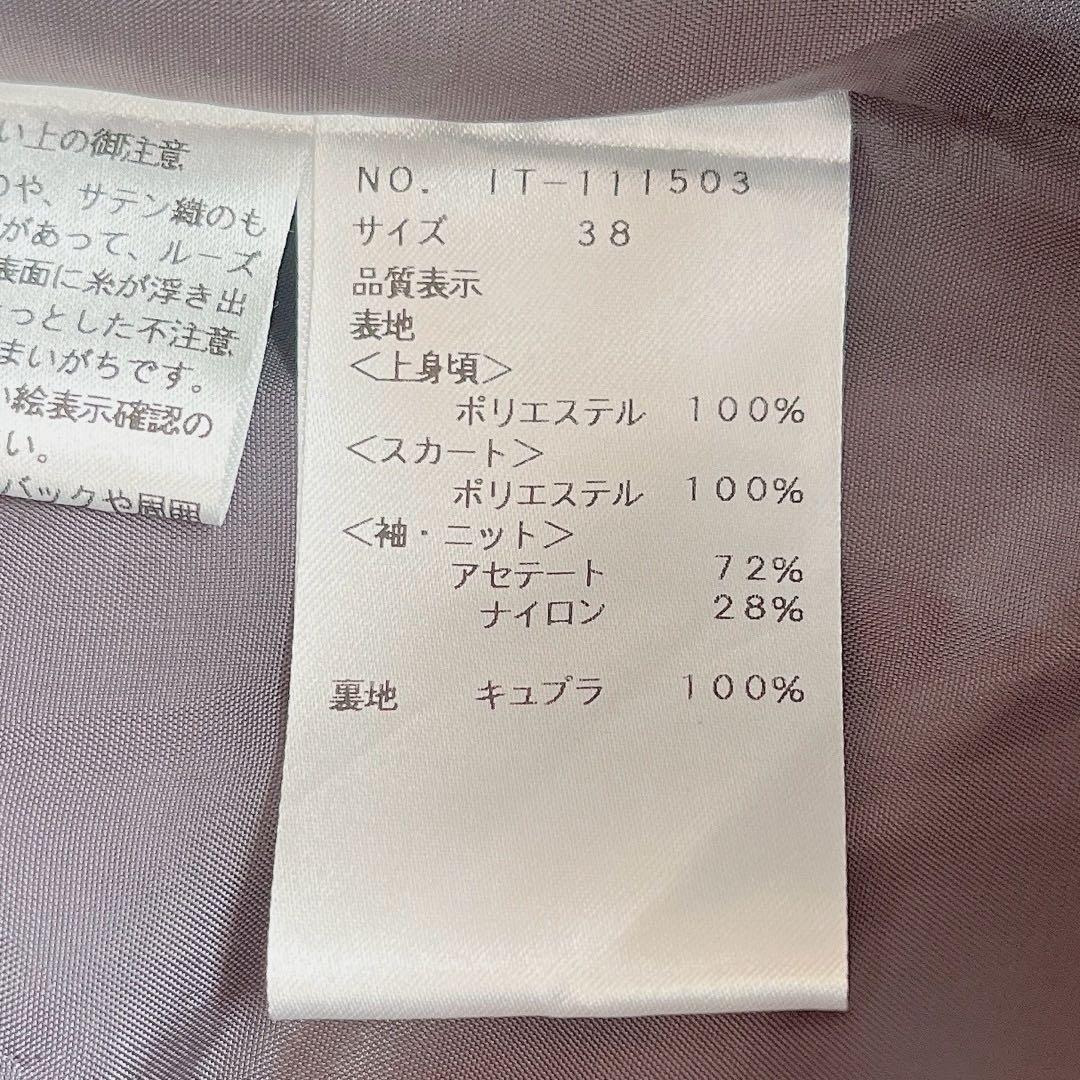 い上の御注意
のや、サテン織のも
があって、ルーズ
表面に糸が浮き出
っとした不注意
まいがちです。
い絵表示確認の
い。
バックや周囲
NO. IT-111503
サイズ 38
品質表示
表地
<上身頃>
ポリエステル 100%
<スカート>
ポリエステル 100%
<袖・ニット>
アセテート 72%
ナイロン 28%
裏地 キュプラ 100%